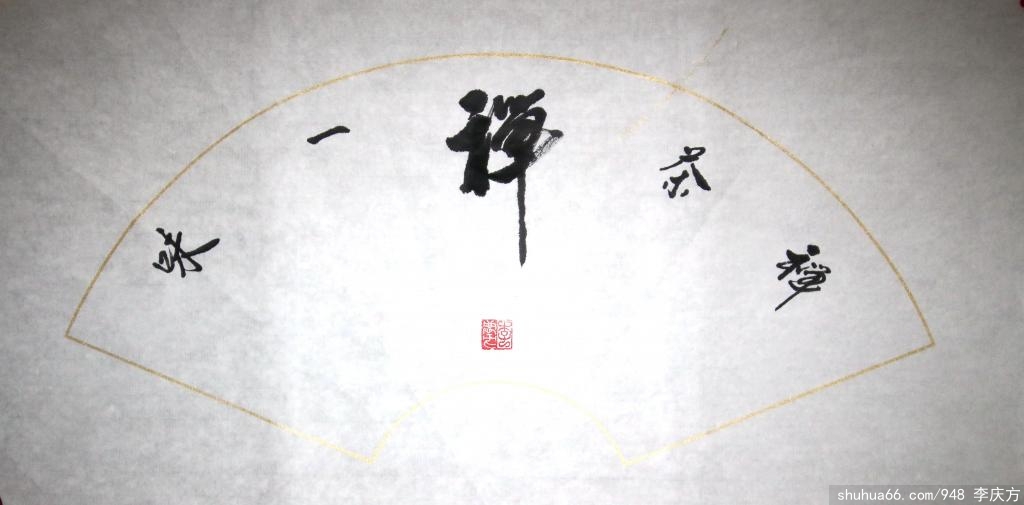 禅
禅茶一味
shuhua66.com/948 李庆方